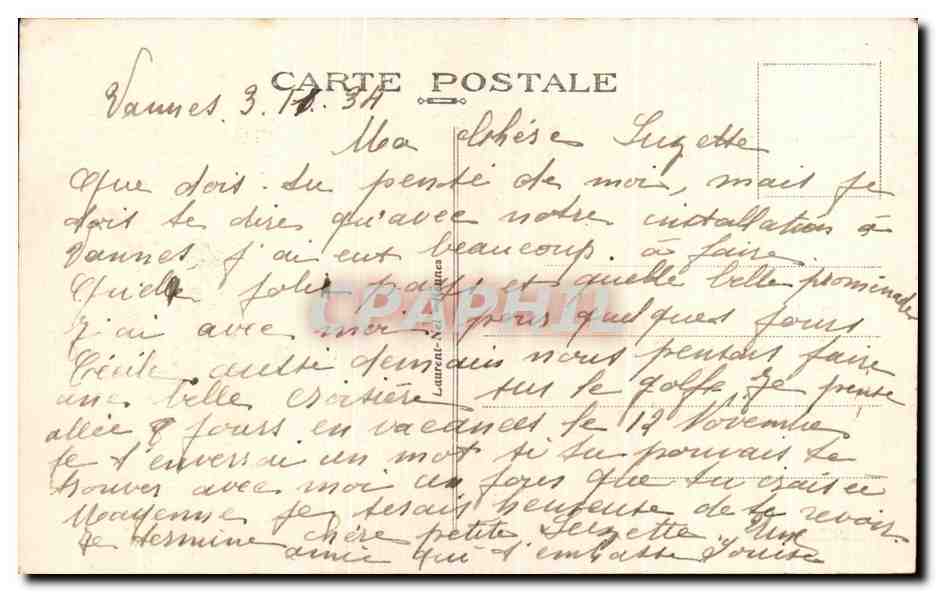 CARTE POSTALE
Vannes. 3. 34
Ma chère Suzette
Que dois-tu pensé de moi, mais je
dois te dire qu'avec notre installation à
Vannes, j'ai eut beaucoup à faire.
Quel joli pays et quelle belle promenade
J'ai avec moi pour quelques jours
Cécile aussi demain nous pensons faire
une belle croisière sur le golfe. Je pense
allée 8 jours en vacances le 12 Novembre
je t'enverrai un mot si tu pouvais te
trouver avec moi un jour que tu
Mayenne je serais heureuse de te revoir.
Je termine chère petite Suzette Une
amie qui t'embrasse Louise
Laurent-Nel, Rennes
CPAPHIL